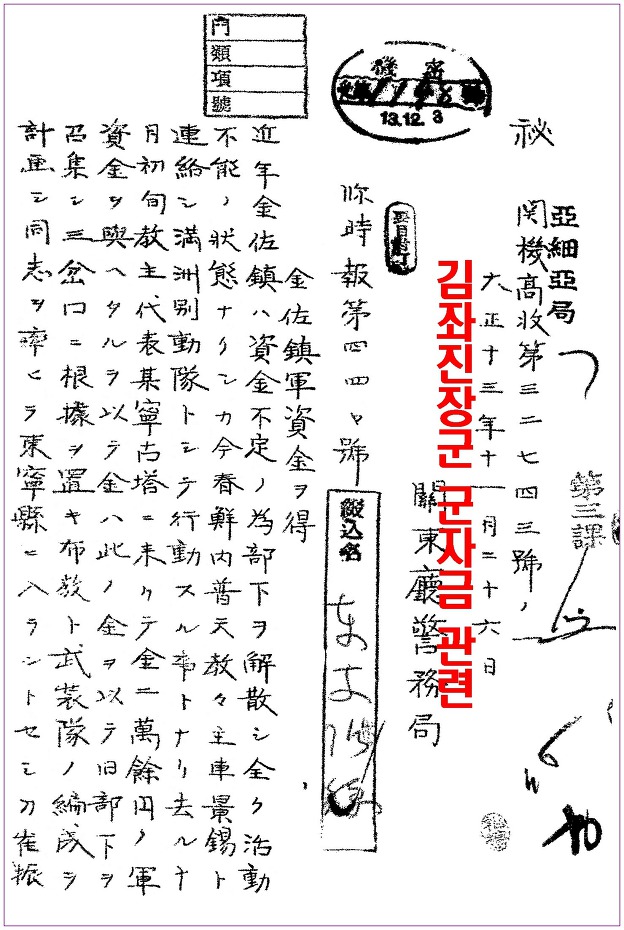 門
類
項
號
機密
13.12.3
秘
亞細亞局
第三課
関機高收第三二七四三號ノ一
大正十三年十一月二十六日
김좌진장군 군자금 관련
關東廳警務局
時報第四四
號
綴込名
金佐鎮軍資金ヲ得
近年金佐鎮ハ資金不定ノ為部下ヲ解散シ全ク活動
不能ノ状態ナリシカ今春鮮内普天教々主車景錫ト
連絡シ満洲別動隊トシテ行動スル事トナリ去ル十
月初旬教主代表某寧古塔ニ来リテ金二萬餘円ノ軍
資金ヲ與ヘタルヲ以テ金ハ此ノ金ヲ以テ旧部下ヲ
召集シ三岔口ニ根據ヲ置キ布教ト武装隊ノ編成ヲ
計画シ同志ヲ率ヒテ東寧縣ニ入ラントセシカ崔振